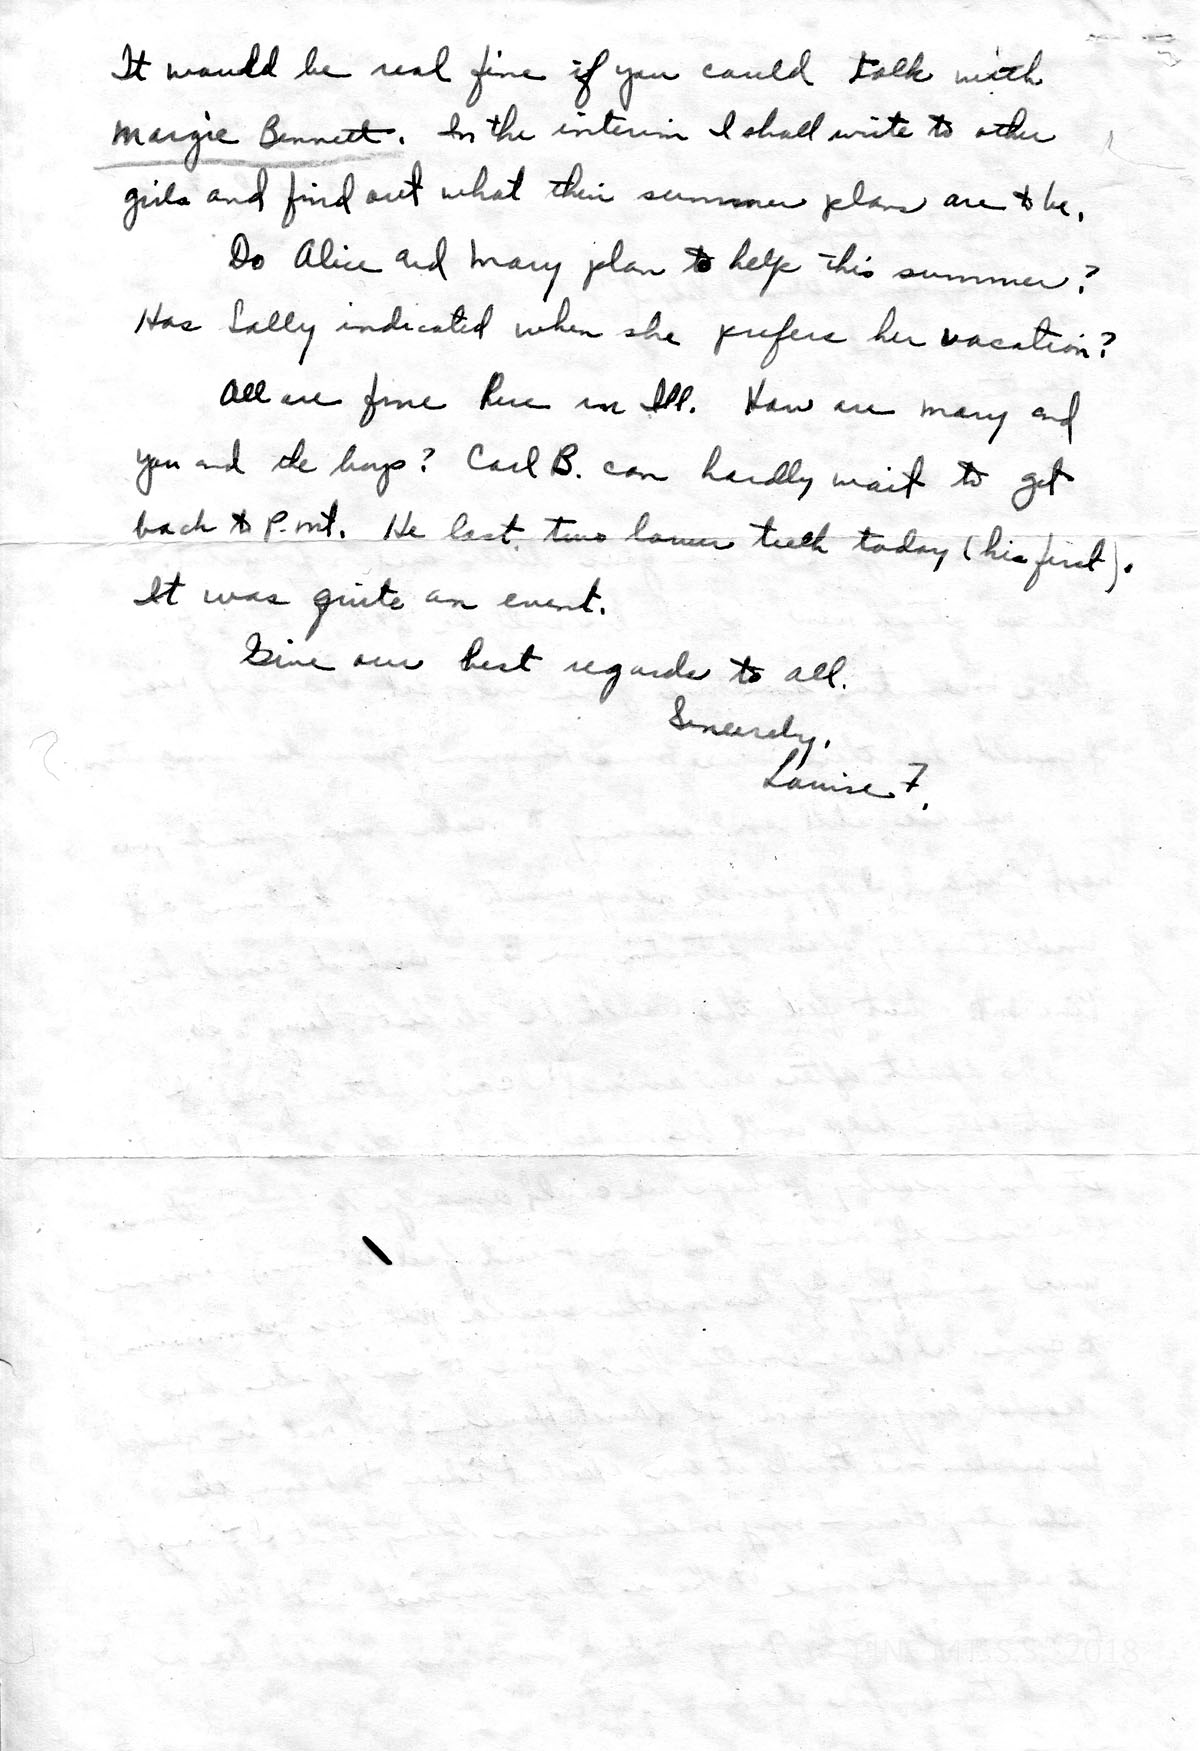 It would be real fine if you could talk with
Margie Bennett. In the interim I shall write to other
girls and find out what their summer plans are to be.
Do Alice and Mary plan to help this summer?
Has Sally indicated when she prefers her vacation?
All are fine here in Ill. How are Mary and
you and the boys? Carl B. can hardly wait to get
back to P. Mt. He lost two lower teeth today (his first).
It was quite an event.
Give our best regards to all.
Sincerely,
Louise F.
2018